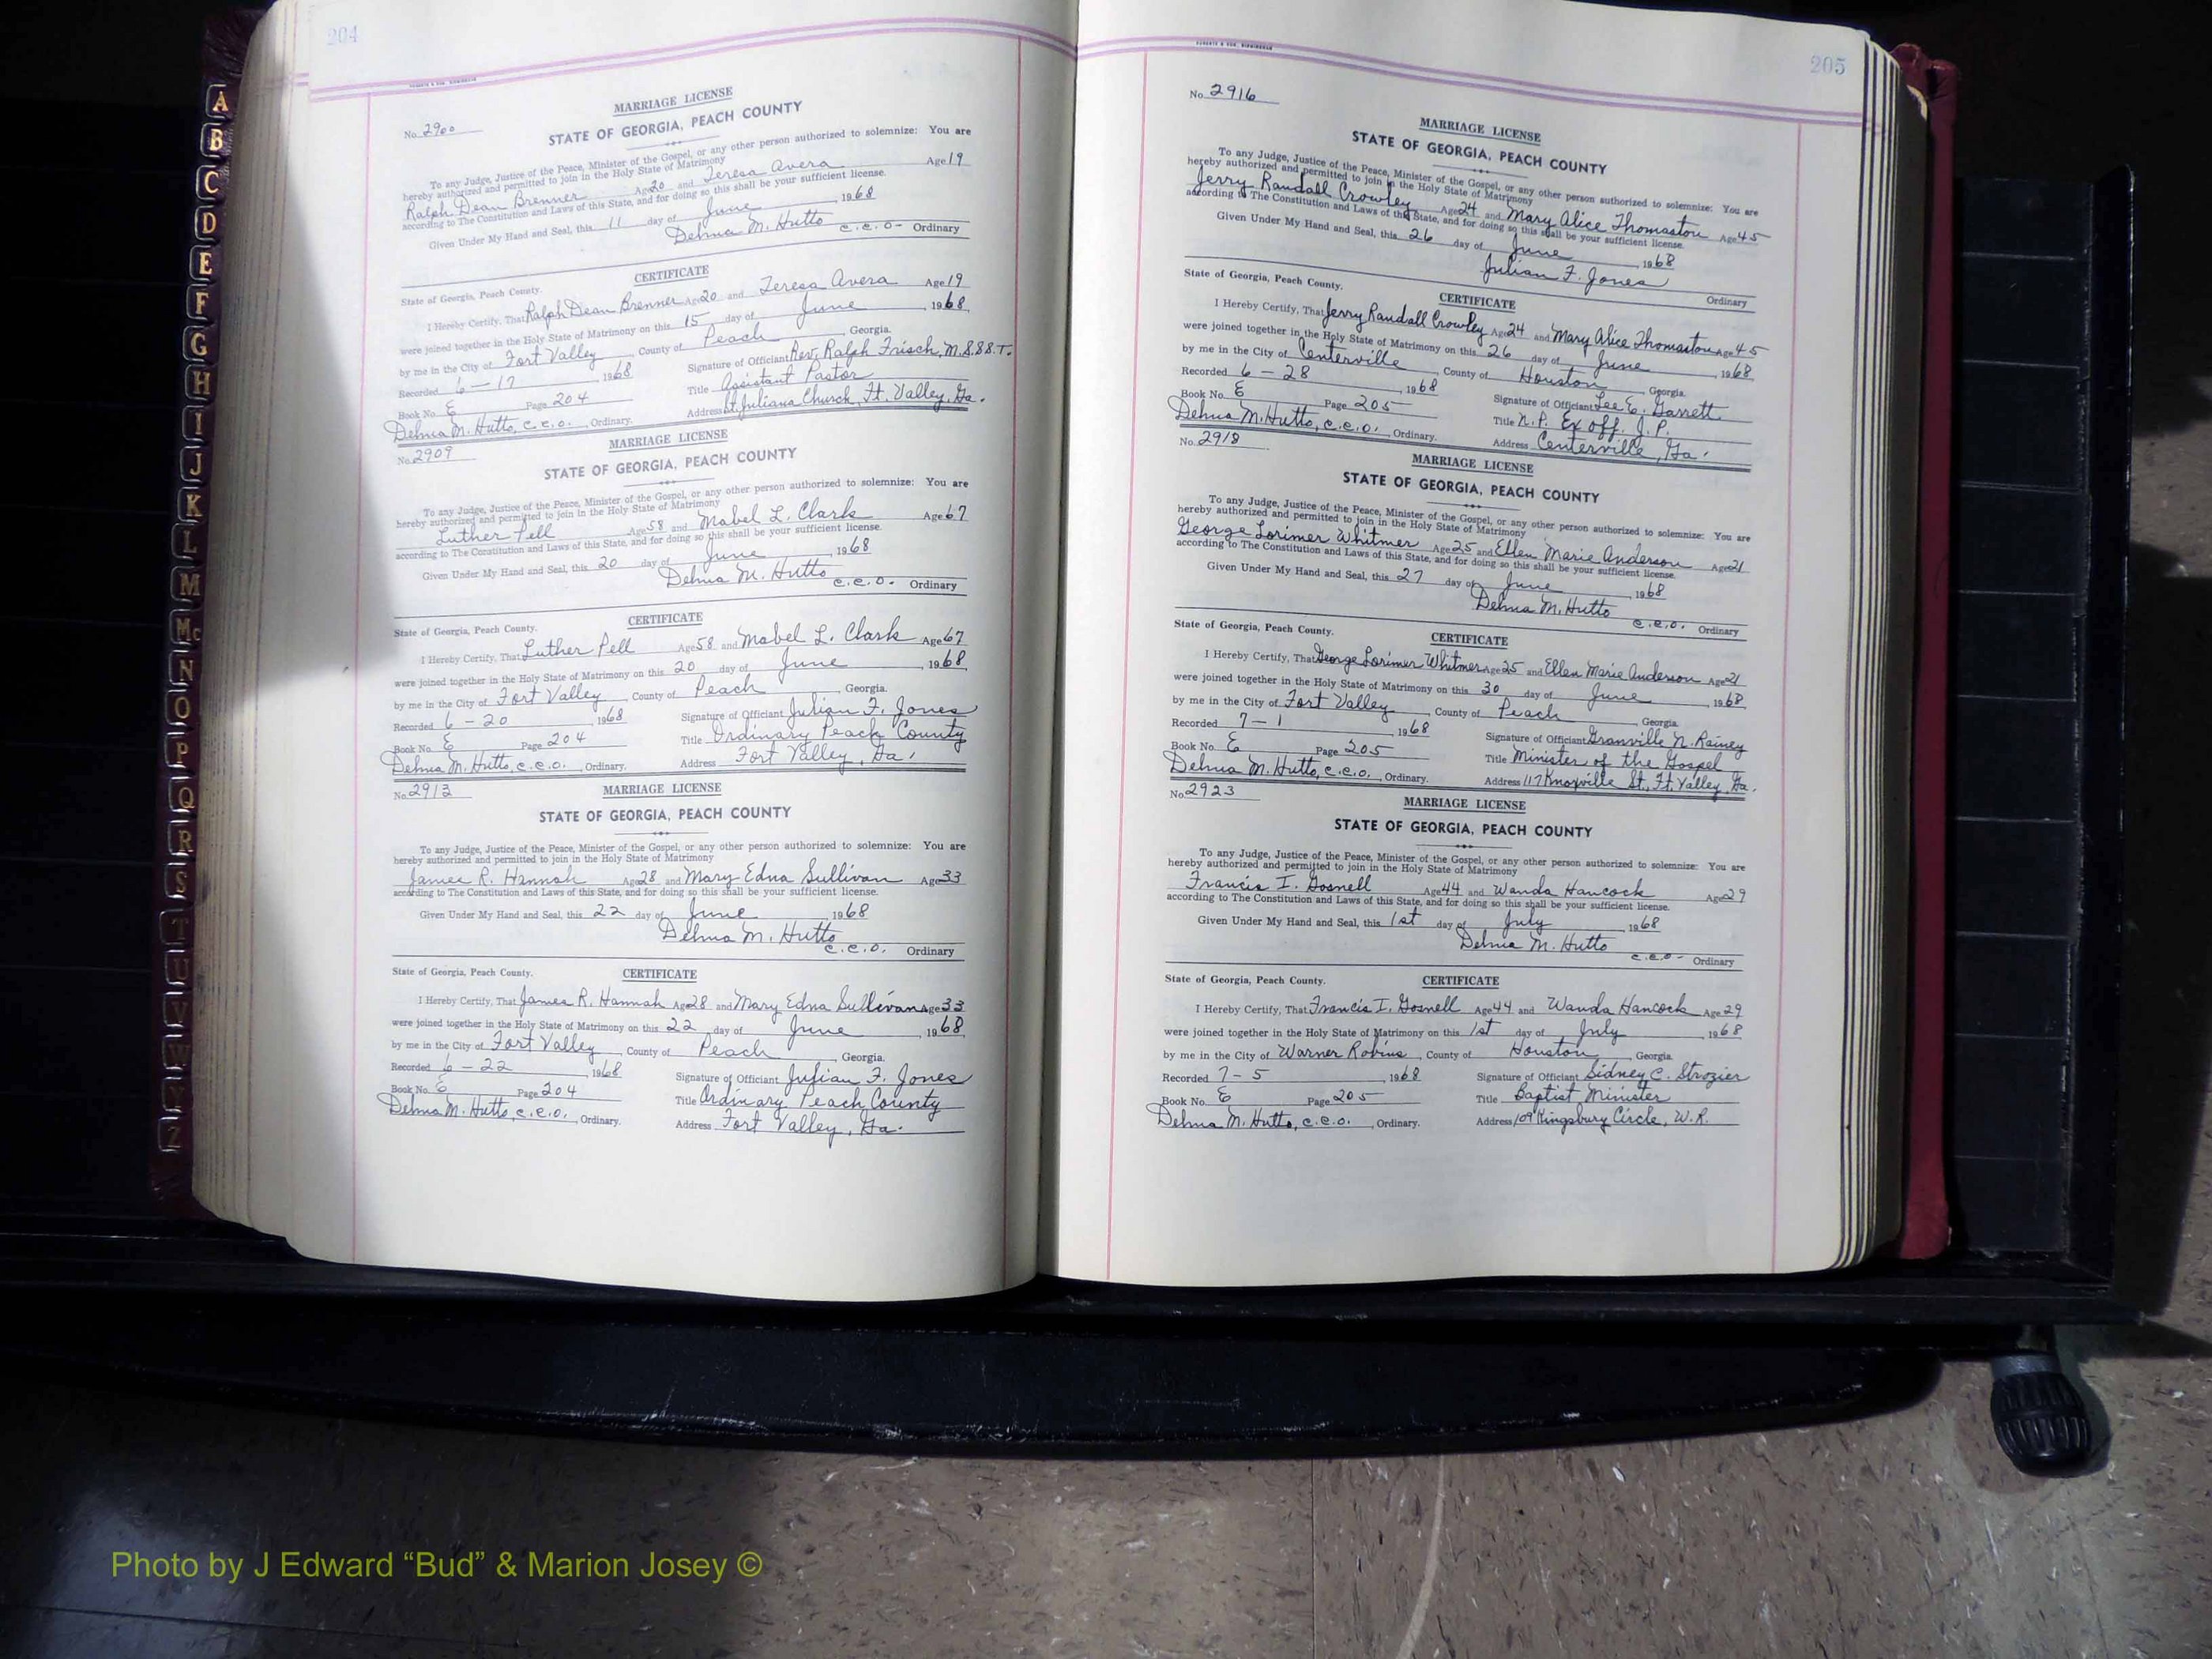 204
MARRIAGE LICENSE
No. 2900
STATE OF GEORGIA, PEACH COUNTY
To any Judge, Justice of the Peace, Minister of the Gospel, or any other person authorized to solemnize: You are
hereby authorized and permitted to join in the Holy State of Matrimony
Ralph Dean Brenner Age 20 and Teresa Avera Age 19
according to The Constitution and Laws of this State, and for doing so this shall be your sufficient license.
Given Under My Hand and Seal, this 11 day of June, 1968
Delma M. Hutto C.C.O- Ordinary
CERTIFICATE
State of Georgia, Peach County.
I Hereby Certify, That Ralph Dean Brenner Age 20 and Teresa Avera Age 19
were joined together in the Holy State of Matrimony on this 15 day of June, 1968,
by me in the City of Fort Valley, County of Peach, Georgia.
Recorded 6-17 1968 Signature of Officiant Rev. Ralph Frisch, M.S.S.S.T.
Book No. E Page 204 Title Assistant Pastor
Delma M. Hutto, C.C.O., Ordinary. Address St. Juliana Church, Ft. Valley, Ga.
MARRIAGE LICENSE
No. 2909
STATE OF GEORGIA, PEACH COUNTY
To any Judge, Justice of the Peace, Minister of the Gospel, or any other person authorized to solemnize: You are
hereby authorized and permitted to join in the Holy State of Matrimony
Luther Pell Age 58 and Mabel L. Clark Age 67
according to The Constitution and Laws of this State, and for doing so this shall be your sufficient license.
Given Under My Hand and Seal, this 20 day of June, 1968
Delma M. Hutto C.C.O. Ordinary
CERTIFICATE
State of Georgia, Peach County.
I Hereby Certify, That Luther Pell Age 58 and Mabel L. Clark Age 67
were joined together in the Holy State of Matrimony on this 20 day of June, 1968
by me in the City of Fort Valley, County of Peach, Georgia.
Recorded 6-20 1968 Signature of Officiant Julian F. Jones
Book No. E Page 204 Title Ordinary Peach County
Delma M. Hutto, C.C.O., Ordinary. Address Fort Valley, Ga.
No. 2913 MARRIAGE LICENSE
STATE OF GEORGIA, PEACH COUNTY
To any Judge, Justice of the Peace, Minister of the Gospel, or any other person authorized to solemnize: You are
hereby authorized and permitted to join in the Holy State of Matrimony
James R. Hannah Age 28 and Mary Edna Sullivan Age 33
according to The Constitution and Laws of this State, and for doing so this shall be your sufficient license.
Given Under My Hand and Seal, this 22 day of June, 1968
Delma M. Hutto
C.C.O. Ordinary
State of Georgia, Peach County. CERTIFICATE
I Hereby Certify, That James R. Hannah Age 28 and Mary Edna Sullivan Age 33
were joined together in the Holy State of Matrimony on this 22 day of June, 1968
by me in the City of Fort Valley, County of Peach, Georgia.
Recorded 6-22, 1968 Signature of Officiant Julian F. Jones
Book No. E Page 204 Title Ordinary Peach County
Delma M. Hutto, C.C.O., Ordinary. Address Fort Valley, Ga.
205
No. 2916
MARRIAGE LICENSE
STATE OF GEORGIA, PEACH COUNTY
To any Judge, Justice of the Peace, Minister of the Gospel, or any other person authorized to solemnize: You are
hereby authorized and permitted to join in the Holy State of Matrimony
Jerry Randall Crowley Age 24 and Mary Alice Thomaston Age 45
according to The Constitution and Laws of this State, and for doing so this shall be your sufficient license.
Given Under My Hand and Seal, this 26 day of June, 1968
Julian F. Jones
Ordinary
State of Georgia, Peach County. CERTIFICATE
I Hereby Certify, That Jerry Randall Crowley Age 24 and Mary Alice Thomaston Age 45
were joined together in the Holy State of Matrimony on this 26 day of June, 1968,
by me in the City of Centerville, County of Houston, Georgia.
Recorded 6-28, 1968 Signature of Officiant Lee E. Garrett
Book No. E Page 205 Title N.P. Ex off. J.P.
Delma M. Hutto, C.C.O., Ordinary. Address Centerville, Ga.
No. 2918
MARRIAGE LICENSE
STATE OF GEORGIA, PEACH COUNTY
To any Judge, Justice of the Peace, Minister of the Gospel, or any other person authorized to solemnize: You are
hereby authorized and permitted to join in the Holy State of Matrimony
George Lorimer Whitmer Age 25 and Ellen Marie Anderson Age 21
according to The Constitution and Laws of this State, and for doing so this shall be your sufficient license.
Given Under My Hand and Seal, this 27 day of June, 1968
Delma M. Hutto
C.C.O. Ordinary
State of Georgia, Peach County. CERTIFICATE
I Hereby Certify, That George Lorimer Whitmer Age 25 and Ellen Marie Anderson Age 21
were joined together in the Holy State of Matrimony on this 30 day of June, 1968,
by me in the City of Fort Valley, County of Peach, Georgia.
Recorded 7-1, 1968 Signature of Officiant Granville N. Rainey
Book No. E Page 205 Title Minister of the Gospel
Delma M. Hutto, C.C.O., Ordinary. Address 117 Knoxville St., Ft. Valley, Ga.
No. 2923
MARRIAGE LICENSE
STATE OF GEORGIA, PEACH COUNTY
To any Judge, Justice of the Peace, Minister of the Gospel, or any other person authorized to solemnize: You are
hereby authorized and permitted to join in the Holy State of Matrimony
Francis I. Gosnell Age 44 and Wanda Hancock Age 29
according to The Constitution and Laws of this State, and for doing so this shall be your sufficient license.
Given Under My Hand and Seal, this 1st day of July, 1968
Delma M. Hutto
C.C.O- Ordinary
State of Georgia, Peach County. CERTIFICATE
I Hereby Certify, That Francis I. Gosnell Age 44 and Wanda Hancock Age 29
were joined together in the Holy State of Matrimony on this 1st day of July, 1968
by me in the City of Warner Robins, County of Houston, Georgia.
Recorded 7-5, 1968 Signature of Officiant Sidney C. Strozier
Book No. E Page 205 Title Baptist Minister
Delma M. Hutto, C.C.O., Ordinary. Address 109 Kingsbury Circle, W.R.
A
B
C
D
E
F
G
H
I
J
K
L
M
Mc
N
O
P
Q
R
S
T
U
V
W
Z
Photo by J Edward “Bud” & Marion Josey ©